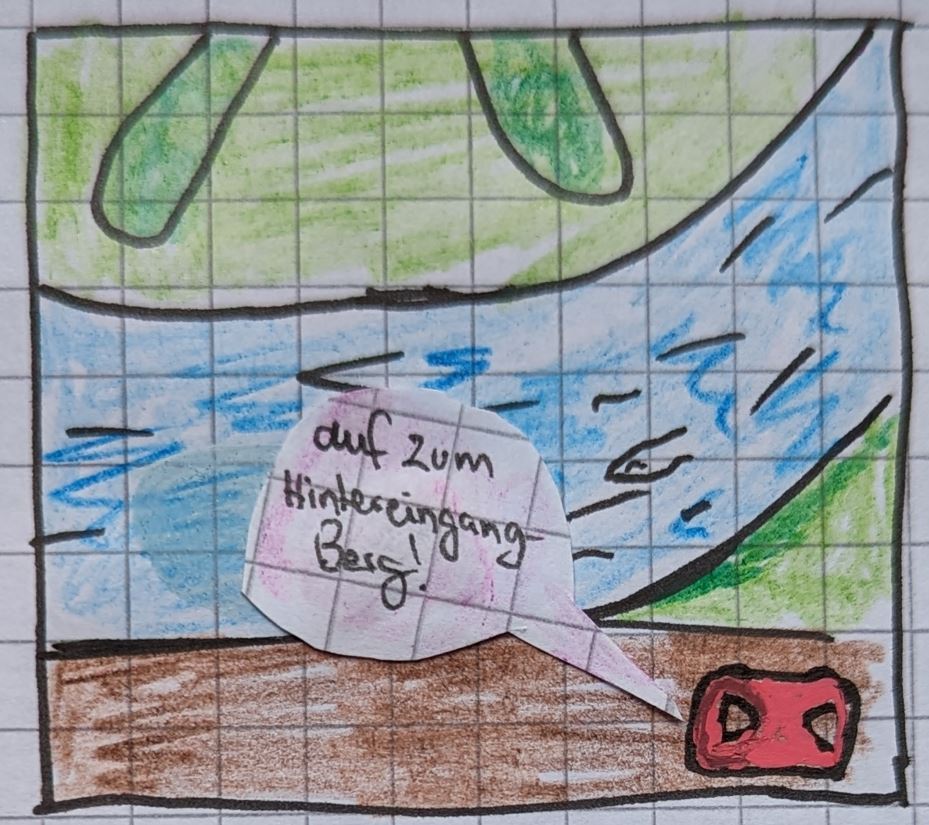 auf zum
Hintereingang-
Berg!